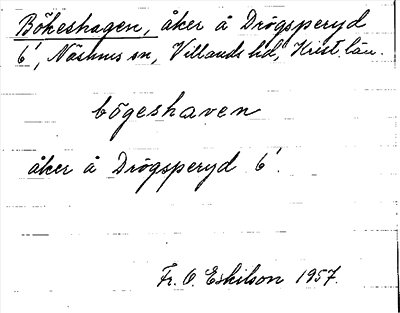 Bökeshagen, åker å Drögsperyd
6¹, Näsums sn, Villands hd, Krist. län.
bögeshaven
åker å Drögsperyd 6¹.
Fr. O. Eskilson 1957.